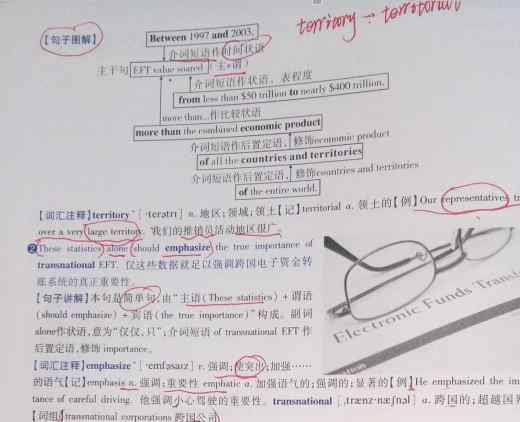 territory → territorial
【句子图解】
Between 1997 and 2003,
介词短语作时间状语
主干句 EFT value soared （主+谓）
介词短语作状语，表程度
from less than $50 trillion to nearly $400 trillion,
more than...作比较状语
more than the combined economic product
介词短语作后置定语，修饰economic product
of all the countries and territories
介词短语作后置定语，修饰countries and territories
of the entire world.
【词汇注释】territory* [ˈterətri] n. 地区；领域；领土【记】territorial a. 领土的【例】Our representatives tr
over a very large territory. 我们的推销员活动地区很广。
❷These statistics alone should emphasize the true importance of
transnational EFT. 仅这些数据就足以强调跨国电子资金转
账系统的真正重要性。
【句子讲解】本句是简单句，由“主语（These statistics）+ 谓语
（should emphasize）+ 宾语（the true importance）”构成。副词
alone作状语，意为“仅仅，只”；介词短语 of transnational EFT 作
后置定语，修饰 importance。
Electronic Funds Trans
【词汇注释】emphasize* [ˈemfəsaɪz] v. 强调；使突出；加强……
的语气【记】emphasis n. 强调；重要性 emphatic a. 加强语气的；强调的；显著的【例】He emphasized the im
tance of careful driving. 他强调小心驾驶的重要性。transnational [ˌtrænzˈnæʃnəl] a. 跨国的；超越国界
【词组】transnational corporations 跨国公司